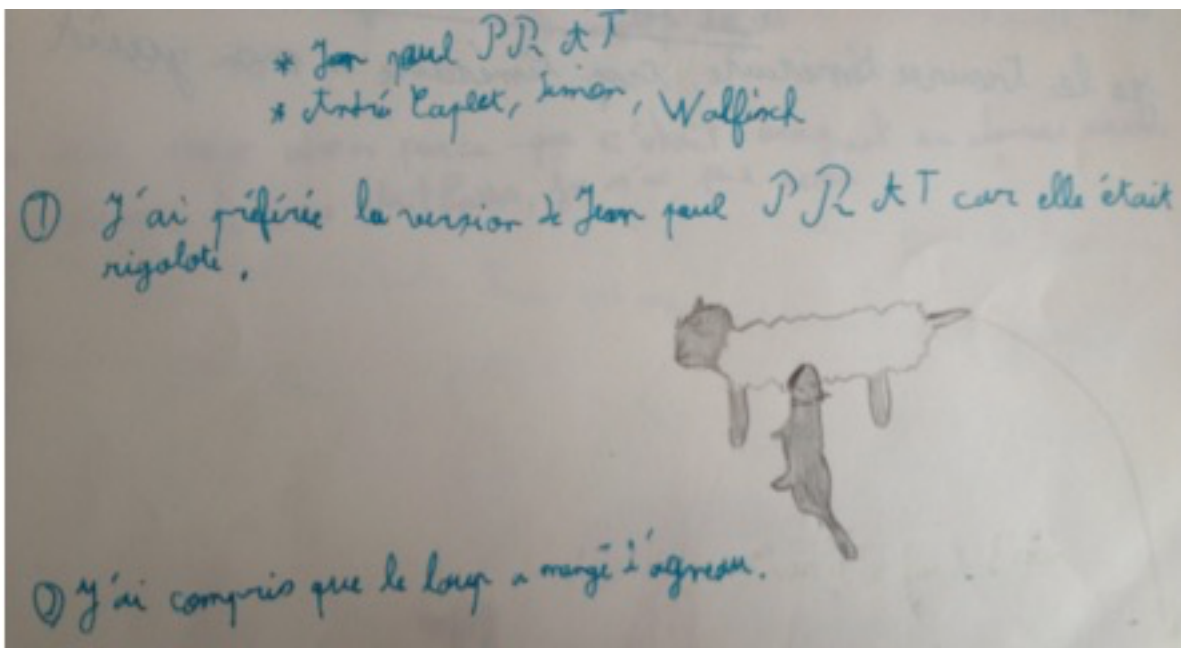 * Jean paul PRAT
* André Caplet, Simon, Walfisch
① J'ai préférée la version de Jean paul PRAT car elle était
rigolote.
② J'ai compris que le loup a mangé l'agneau.